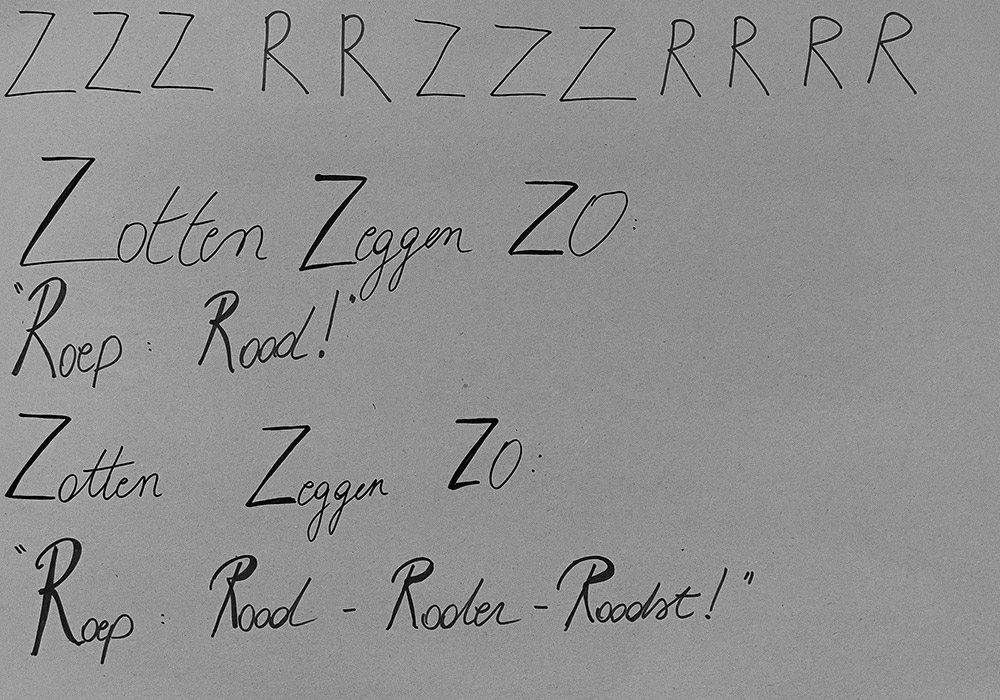 ZZZ RR ZZZ RRRR
Zotten Zeggen ZO:
"Roep: Rood!"
Zotten Zeggen ZO:
"Roep: Rood - Roder - Roodst!"